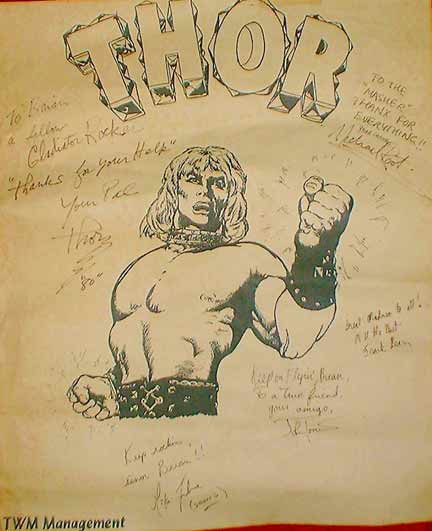 THOR
To Brian
a fellow
Gladiator Rocker
"Thanks for your Help"
Your Pal
Thor
"80"
TO THE
"MASHER"
THANX FOR
EVERYTHING!!
Michael
to all!
All the Best
Keep on Flyin' Brian,
To a true friend,
your amigo,
Keep rockin,
Brian!!
Mike
TWM Management